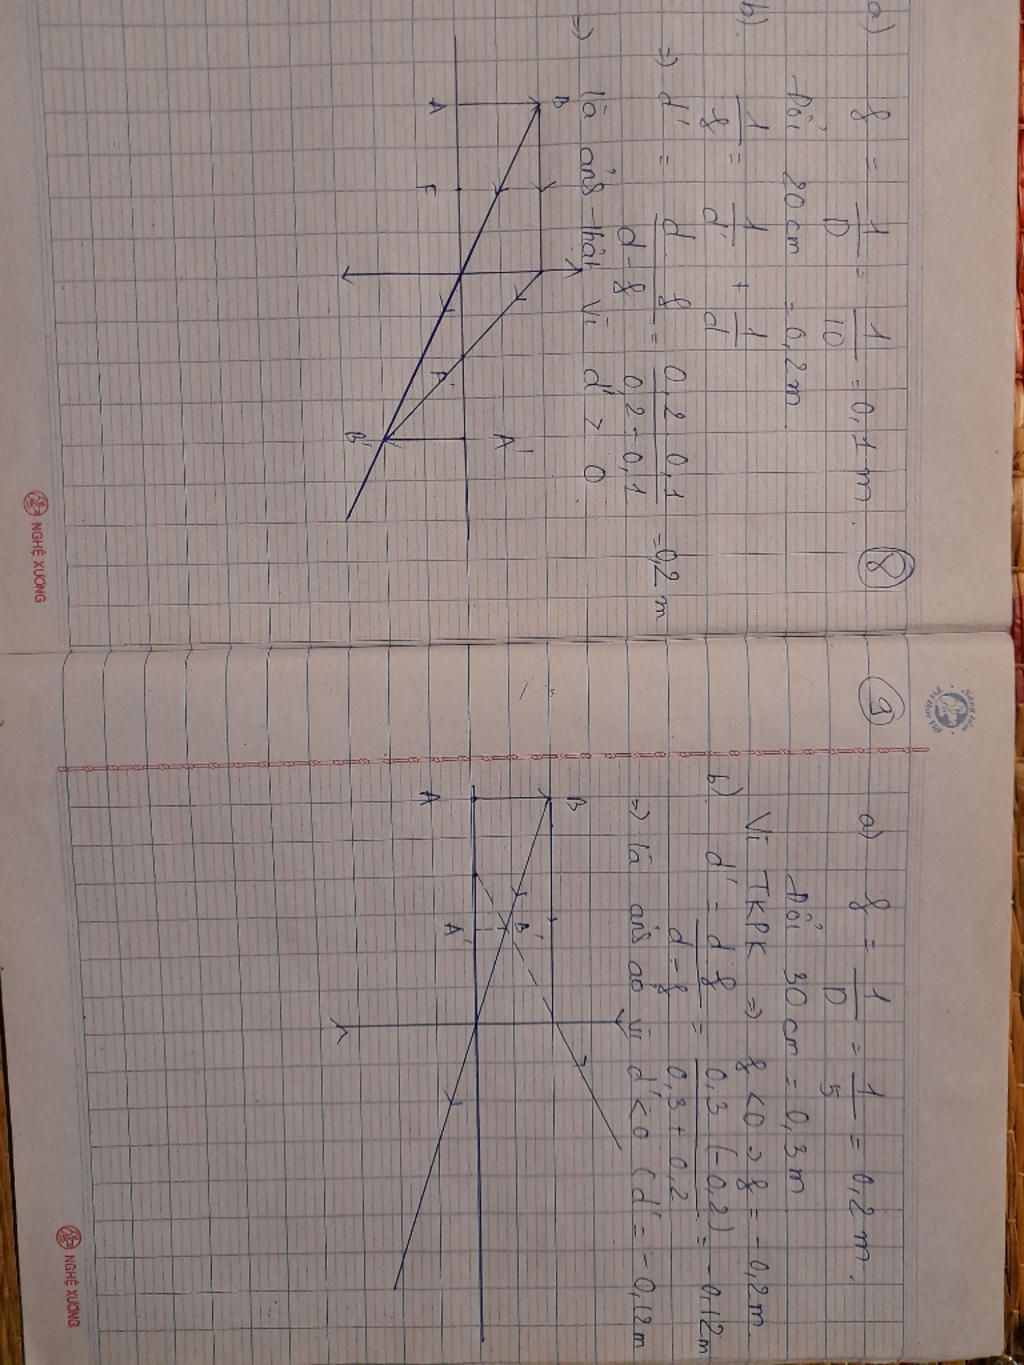 8
a) f = 1/D = 1/10 = 0,1 m.
Đổi 20 cm = 0,2 m
b). 1/f = 1/d' + 1/d
=) d' = d f/d-f = 0,2 0,1/0,2-0,1 = 0,2 m
=) là ảnh thật vì d' > 0
B
A
F
F'
A'
B'
NGHỆ XƯƠNG
9
a) f = 1/D = 1/5 = 0,2 m.
Đổi 30 cm = 0,3 m
Vì TKPK =) f <0 => f = -0,2 m.
b) d' = d f/d-f = 0,3 (-0,2)/0,3+0,2 = -0,12 m
=) là ảnh ảo vì d' < 0 (d' = -0,12 m
B
A
B'
A'
NGHỆ XƯƠNG